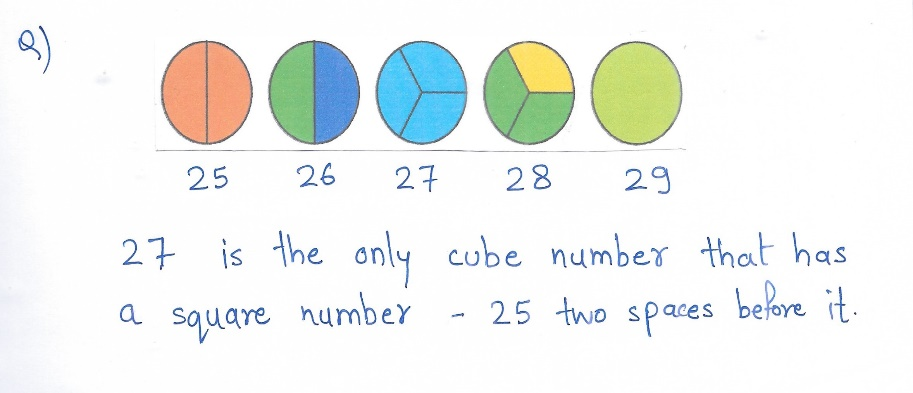 Q)
25 26 27 28 29
27 is the only cube number that has
a square number - 25 two spaces before it.